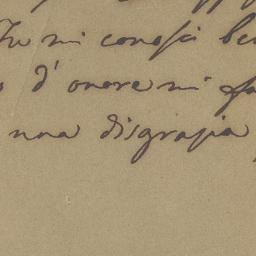 Tu mi conosci be
d'onore mi fa
una disgrazia